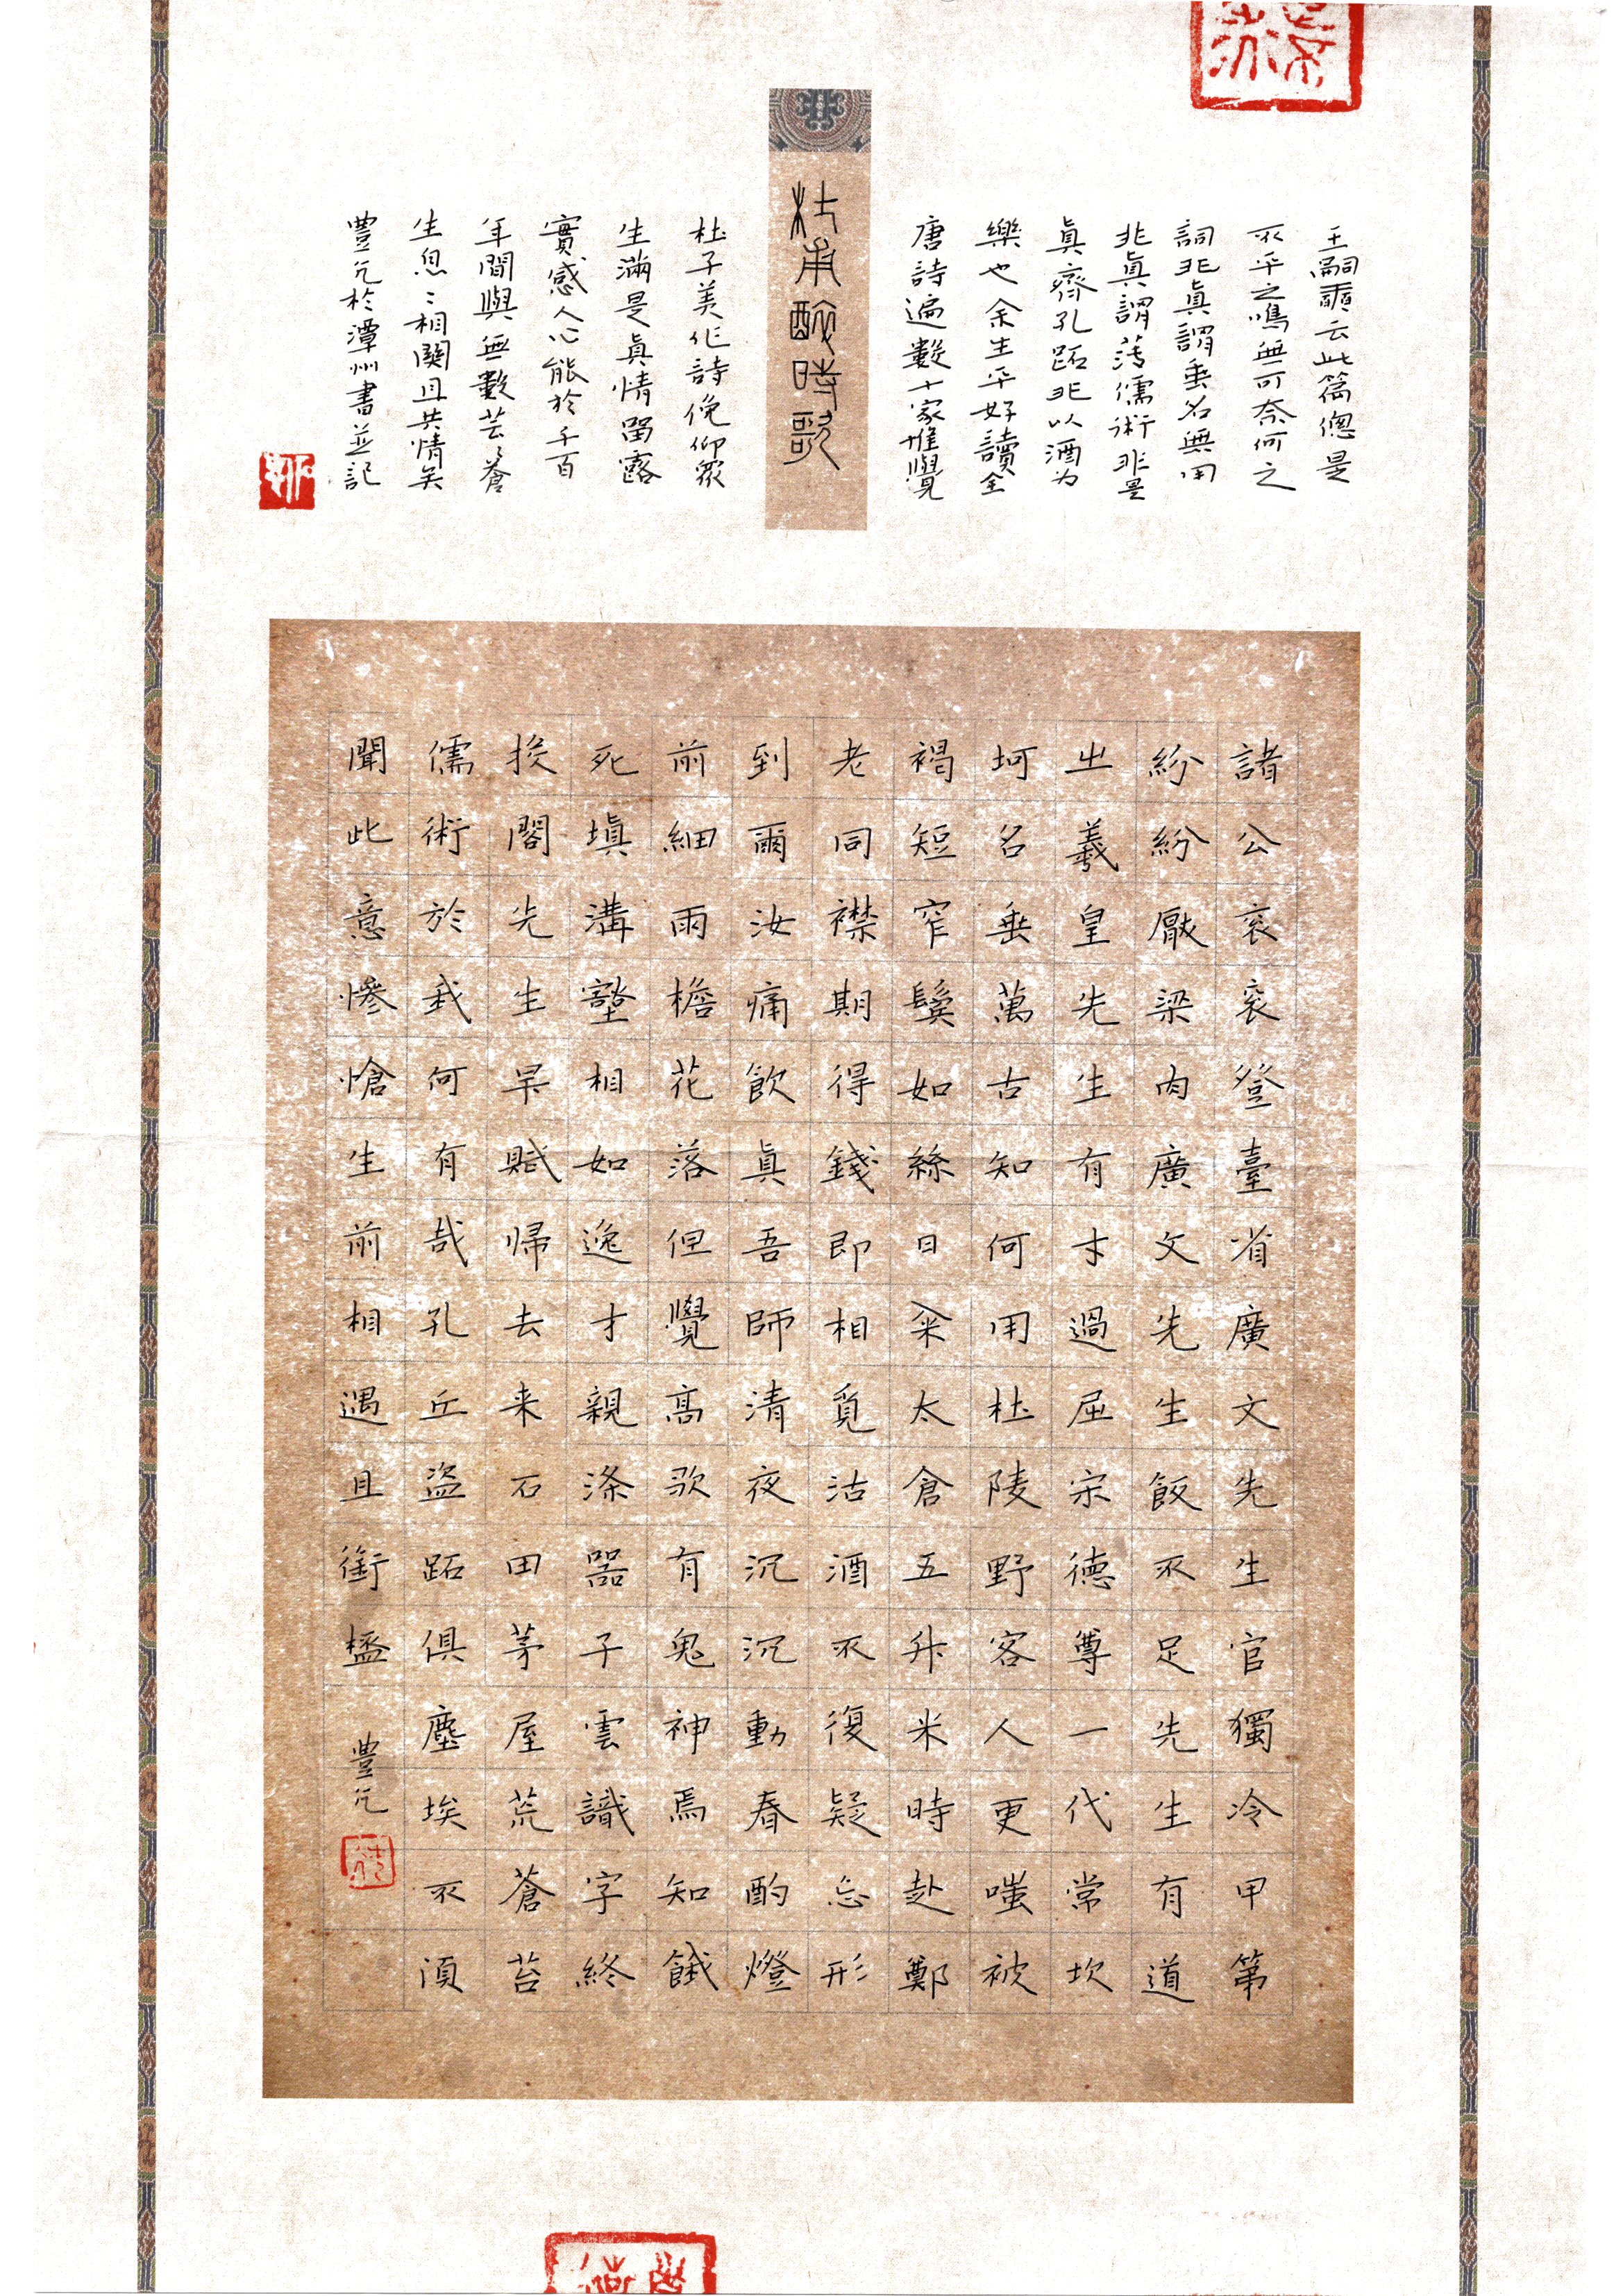 王嗣奭云此篇總是
不平之鳴無可奈何之
詞非真謂垂名無用
非真謂薄儒術非是
真齊孔跖非以酒为
樂也余生平好讀全
唐詩遍數十家惟覺
杜甫醉時歌
杜子美作詩俛仰眾
生滿是真情留露
實感人心能於千百
年間與無數芸〻蒼
生息〻相關且共情矣
豐乞於潭州書並記
諸公袞袞登臺省廣文先生官獨冷甲第
紛紛厭梁肉廣文先生飯不足先生有道
出羲皇先生有才過屈宋德尊一代常坎
坷名垂萬古知何用杜陵野客人更嗤被
褐短窄鬢如絲日籴太倉五升米時赴鄭
老同襟期得錢即相覓沽酒不復疑忘形
到爾汝痛飲真吾師清夜沉沉動春酌燈
前細雨檐花落但覺高歌有鬼神焉知餓
死填溝壑相如逸才親滌器子雲識字終
投閣先生早賦歸去来石田茅屋荒蒼苔
儒術於我何有哉孔丘盜跖俱塵埃不須
聞此意慘愴生前相遇且銜桮
豐乞